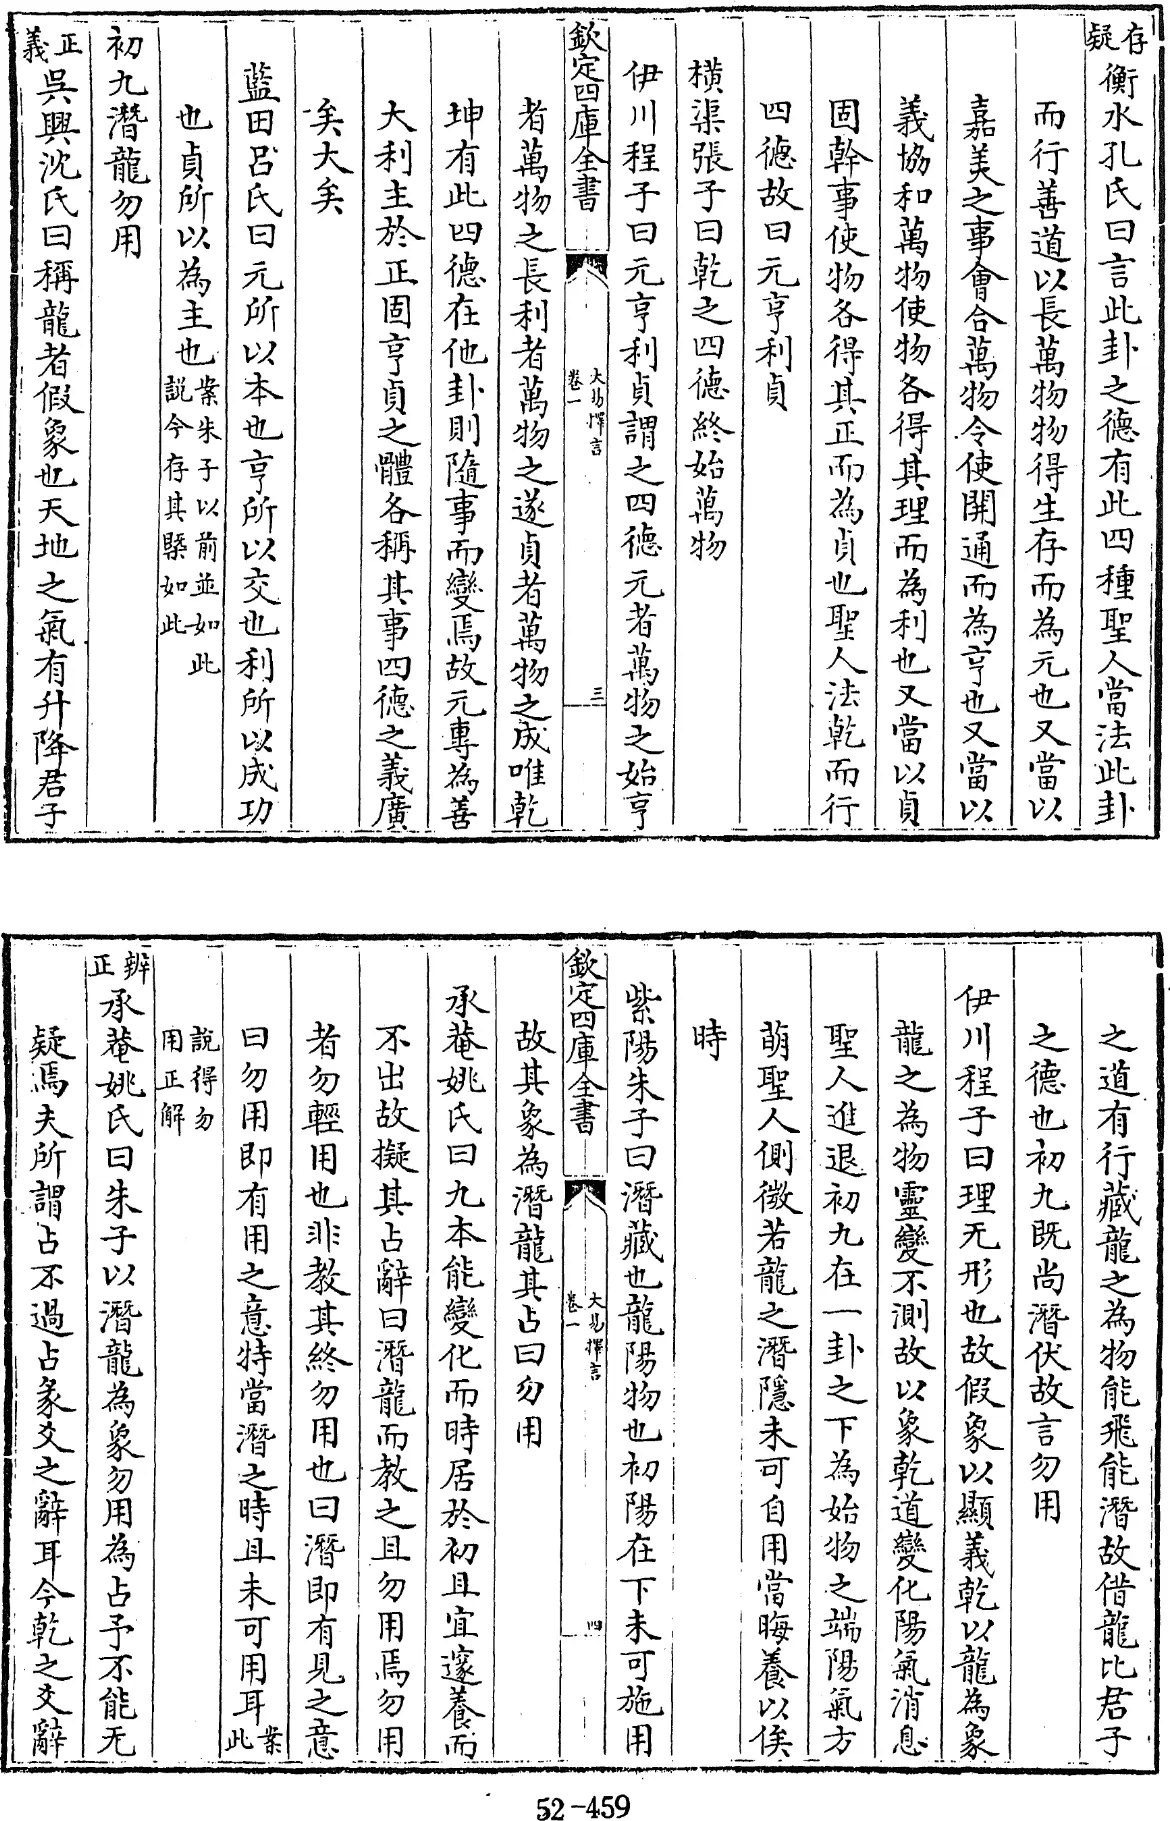 存疑衡水孔氏曰言此卦之德有此四種聖人當法此卦
而行善道以長萬物物得生存而為元也又當以
嘉美之事會合萬物令使開通而為亨也又當以
義協和萬物使物各得其理而為利也又當以貞
固幹事使物各得其正而為貞也聖人法乾而行
四德故曰元亨利貞
橫渠張子曰乾之四德終始萬物
伊川程子曰元亨利貞謂之四德元者萬物之始亨
欽定四庫全書
大易擇言
卷一
三
者萬物之長利者萬物之遂貞者萬物之成唯乾
坤有此四德在他卦則隨事而變焉故元專為善
大利主於正固亨貞之體各稱其事四德之義廣
矣大矣
藍田呂氏曰元所以本也亨所以交也利所以成功
也貞所以為主也案朱子以前並如此說今存其槩如此
初九潛龍勿用
正義吳興沈氏曰稱龍者假象也天地之氣有升降君子
之道有行藏龍之為物能飛能潛故借龍比君子
之德也初九既尚潛伏故言勿用
伊川程子曰理无形也故假象以顯義乾以龍為象
龍之為物靈變不測故以象乾道變化陽氣消息
聖人進退初九在一卦之下為始物之端陽氣方
萌聖人側微若龍之潛隱未可自用當晦養以俟
時
紫陽朱子曰潛藏也龍陽物也初陽在下未可施用
欽定四庫全書
大易擇言
卷一
四
故其象為潛龍其占曰勿用
承菴姚氏曰九本能變化而時居於初且宜邃養而
不出故擬其占辭曰潛龍而教之且勿用焉勿用
者勿輕用也非教其終勿用也曰潛即有見之意
曰勿用即有用之意特當潛之時且未可用耳案此
說得勿用正解
辨正承菴姚氏曰朱子以潛龍為象勿用為占予不能无
疑焉夫所謂占不過占彖爻之辭耳今乾之爻辭
52-459